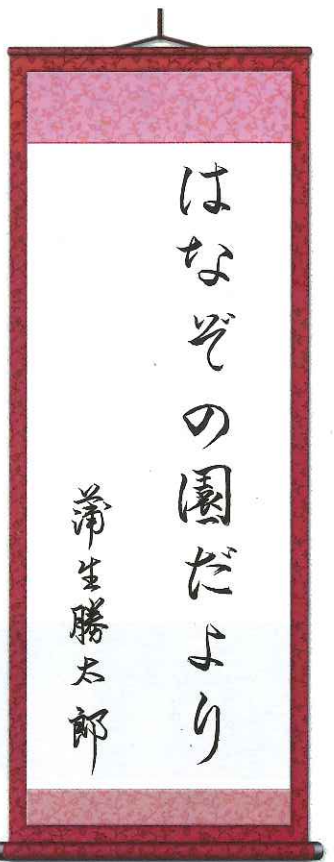 はなぞの園だより
蒲生勝太郎